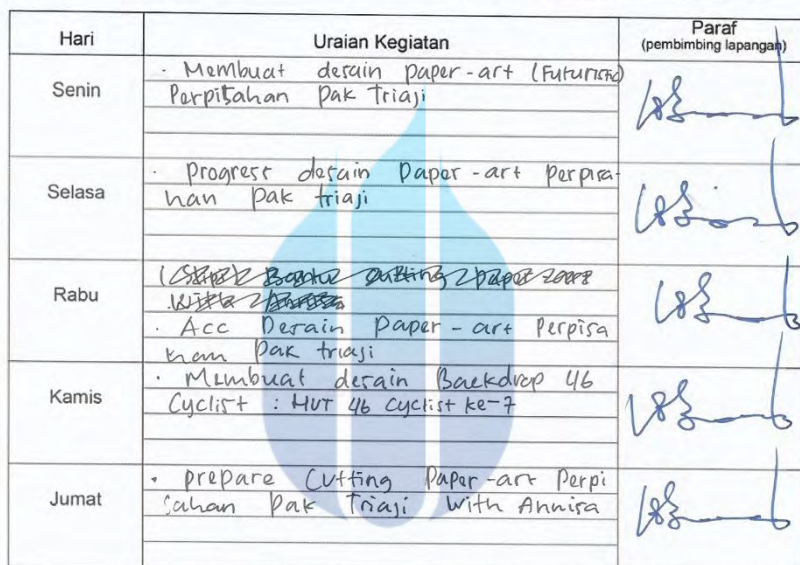 Hari
Uraian Kegiatan
Paraf
(pembimbing lapangan)
Senin
· Membuat desain paper-art (Futuristic)
Perpisahan Pak Triaji
Selasa
· Progress desain Paper-art Perpisa-
han Pak triaji
Rabu
· Acc Desain Paper-art Perpisa
han Pak triaji
Kamis
· Membuat desain Backdrop 46
Cyclist : HUT 46 Cyclist ke-7
Jumat
· prepare Cutting Paper-art Perpi
sahan Pak Triaji With Annisa